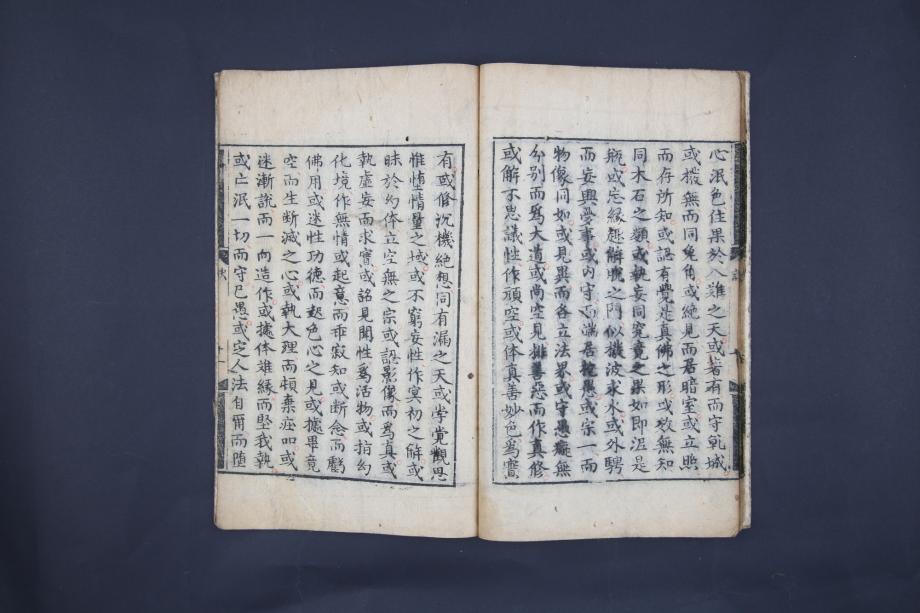 心泯色住果於八難之天或著有而守乹城
或撥無而同兔角或絶見而居暗室或立照
而存所知或認有覺是真佛之形或效無知
同木石之類或執妄同究竟之果如即泥是
瓶或忘緣趣解脫之門似撥波求水或外騁
而妄興夢事或內守而端居抱愚或宗一而
物像同如或見異而各立法界或守愚癡無
分別而爲大道或尚空見排善惡而作真修
或解不思議性作頑空或体真善妙色爲實
有或修沉機絶想同有漏之天或学覺觀思
惟堕情量之域或不窮妄性作冥初之解或
昧於幻体立空無之宗或認影像而爲真或
執虛妄而求實或認見聞性爲活物或指幻
化境作無情或起意而乖寂知或断念而虧
佛用或迷性功德而起色心之見或據畢竟
空而生断滅之心或執大理而頓棄庄或
迷漸說而一向造作或據体離緣而堅我執
或亡泯一切而守己愚或定人法自爾而堕
訣